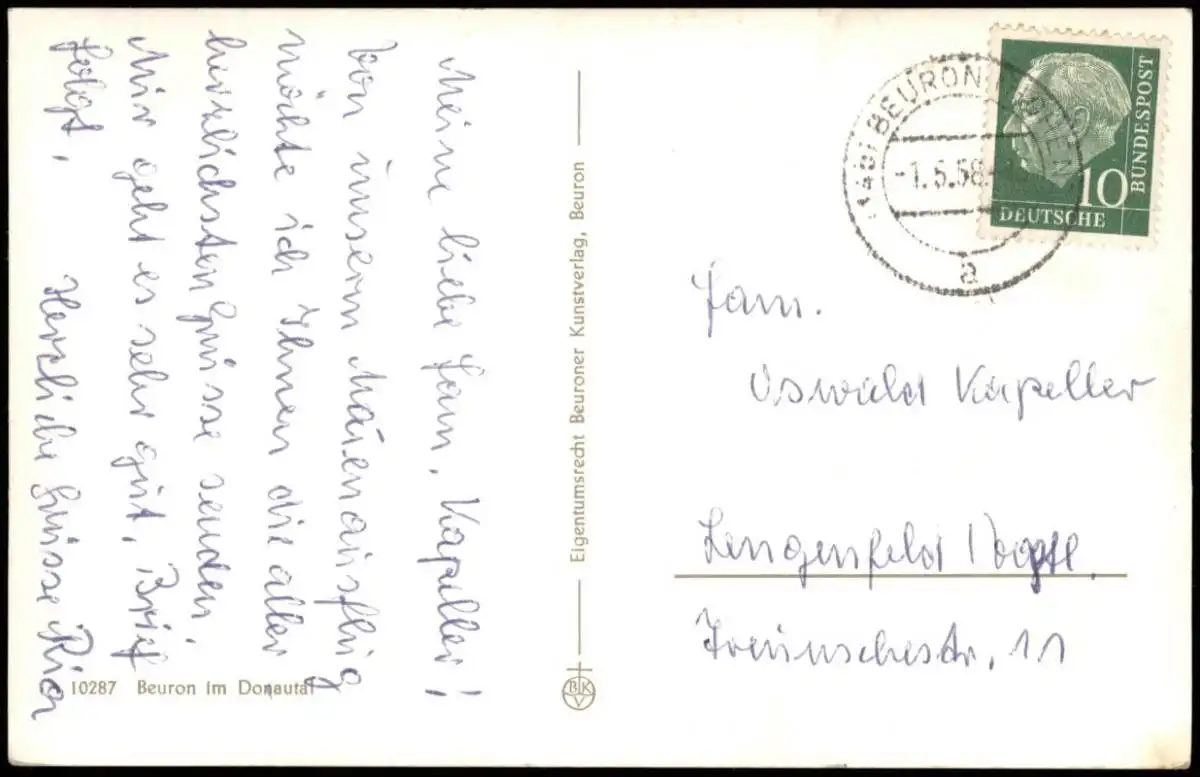 Meine liebe Fam. Kapeller!
Von unserm Maienausflug
möchte ich Ihnen die aller
herzlichsten Grüsse senden.
Mir geht es sehr gut. Brief
folgt. Herzliche Grüsse Ria
10287 Beuron im Donautal
Eigentumsrecht Beuroner Kunstverlag, Beuron
BKV
(14b) BEURON
-1.5.58
a
10
DEUTSCHE
BUNDESPOST
Fam.
Oswald Kapeller
Lengenfeld Vogtl.
11